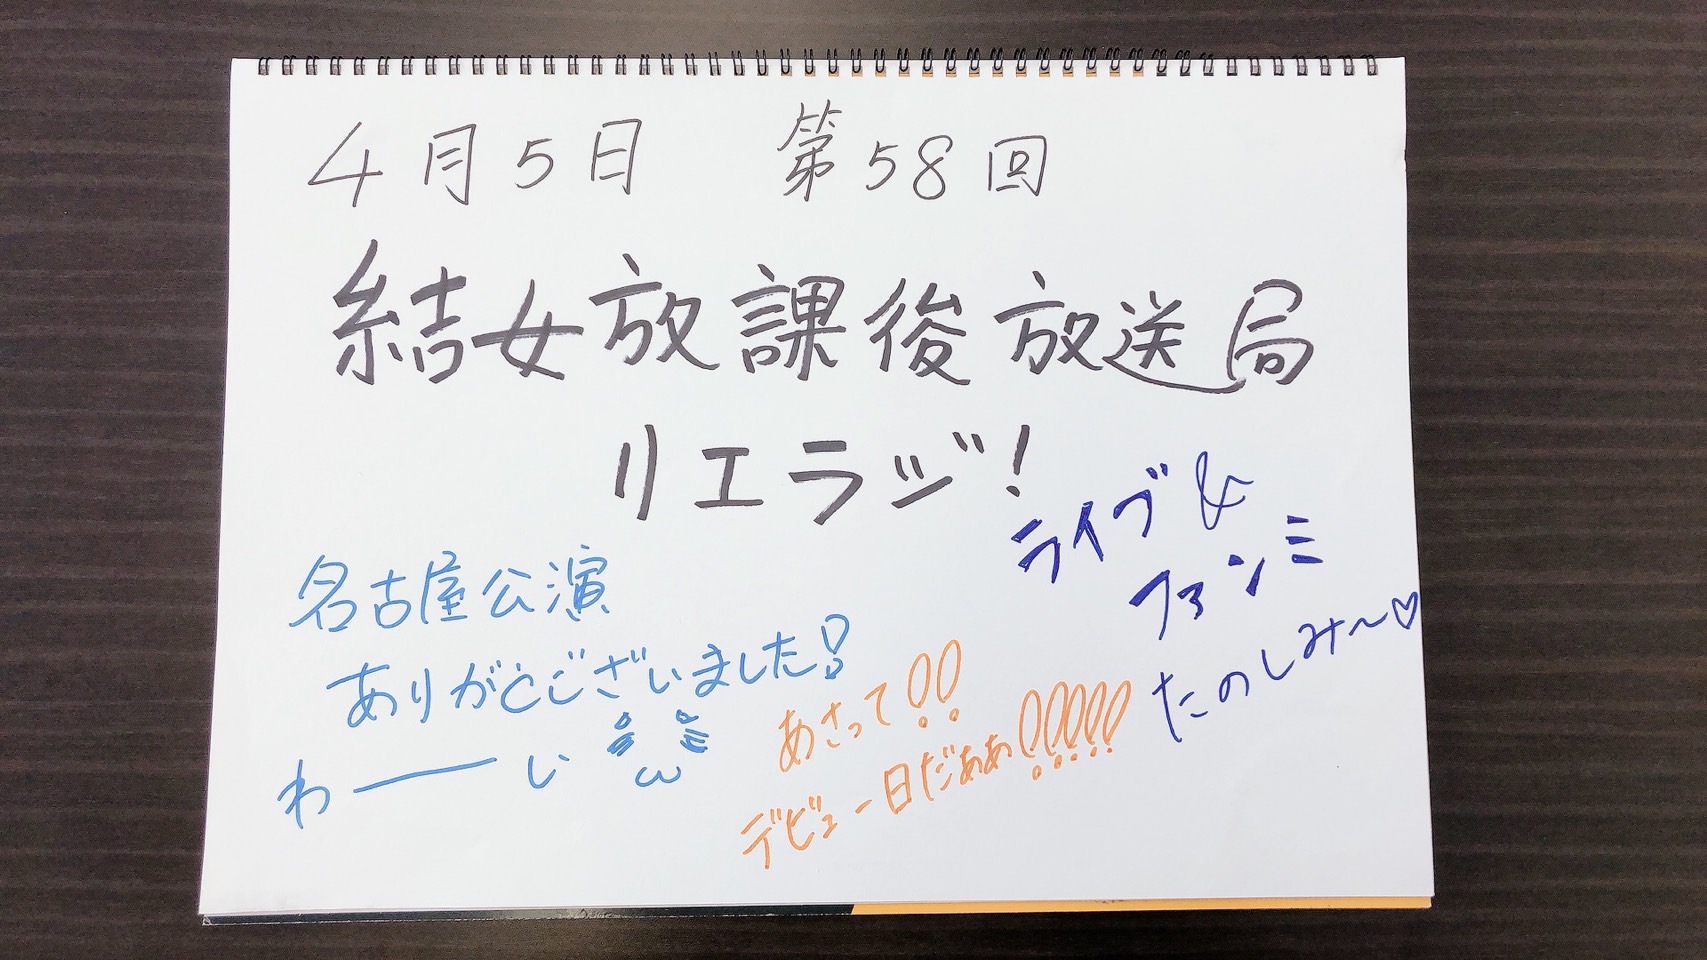 4月5日 第58回
結女放課後放送局
リエラジ!
ライブ&
ファンミ
たのしみ〜♡
名古屋公演
ありがとございました!
わーーーい
ω
あさって!!
デビュー日だぁぁ!!!!!